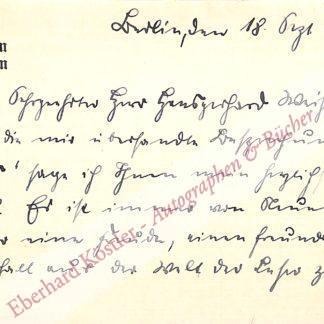 Berlin, den 18. Sept
n
n
Sehrgeehrter Herr Hansgerhard Weiß
die mir übersandte Besprechung
" sage ich Ihnen meinen herzlichs
! Es ist immer von Neuem
eine Freude, einen freund
hall aus der Welt der Leser z
Eberhard Köstler - Autographen & Bücher